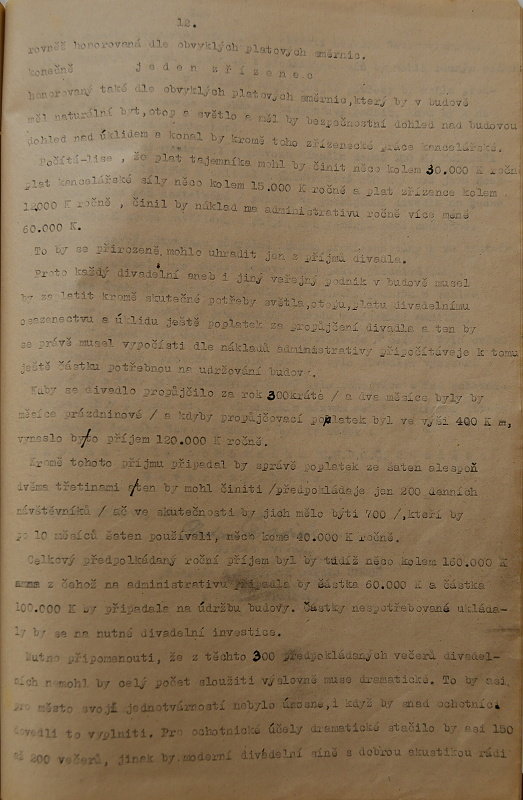 12.
rovněž honorovaná dle obvyklých platových směrnic.
konečně jeden zřízenec
honorovaný také dle obvyklých platových směrnic,který by v budově
měl naturální byt,otop a světlo a měl by bezpečnostní dohled nad budovou
dohled nad úklidem a konal by kromě toho zřízenecké práce kancelářské.
Počítá-lise , že plat tajemníka mohl by činit něco kolem 30.000 K ročně
plat kancelářské síly něco kolem 15.000 K ročně a plat zřízence kolem
12000 K ročně , činil by náklad na administrativu ročně více méně
60.000 K.
To by se přirozeně,mohlo uhradit jen z příjmů divadla.
Proto každý divadelní aneb i jiný veřejný podnik v budově musel
by zaplatit kromě skutečné potřeby světla,otopu,platu divadelnímu
osazenectvu a úklidu ještě poplatek za propůjčení divadla a ten by
se právě musel vypočísti dle nákladů administrativy připočítávaje k tomu
ještě částku potřebnou na udržování budovy.
Kdyby se divadlo propůjčilo za rok 300kráte / a dva měsíce byly by
měsíce prázdninové / a kdyby propůjčovací poplatek byl ve výši 400 K m,
vyneslo by to příjem 120.000 K ročně.
Kromě tohoto příjmu připadal by správě poplatek ze šaten alespoň
dvěma třetinami a ten by mohl činiti /předpokládaje jen 200 denních
návštěvníků / ač ve skutečnosti by jich mělo býti 700 /,kteří by
po 10 měsíců šaten používali, něco kome 40.000 K ročně.
Celkový předpolkádaný roční příjem byl by tudíž něco kolem 160.000 K
z čehož na administrativu připadla by částka 60.000 K a částka
100.000 K by připadala na údržbu budovy. Částky nespotřebované ukláda-
ly by se na nutné divadelní investice.
Nutno připomenouti, že z těchto 300 předpokládaných večerů divadel-
ních nemohl by celý počet sloužiti výslovně muse dramatické. To by asi
pro město svojí jednotvárností nebylo únosné,i když by snad ochotníci
dovedli to vyplniti. Pro ochotnické účely dramatické stačilo by asi 150
až 200 večerů, jinak by moderní divadelní síně z dobrou akustikou rádi